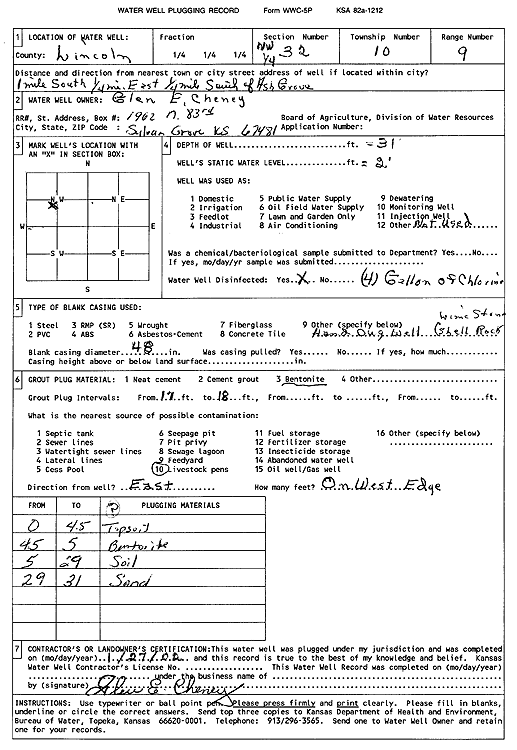 WATER WELL PLUGGING RECORD Form WWC-5P KSA 82a-1212
1 LOCATION OF WATER WELL: Fraction Section Number Township Number Range Number
County: Lincoln 1/4 1/4 1/4 NW 1/4 32 10 9
Distance and direction from nearest town or city street address of well if located within city?
1 mile South 1/4 mi. East 1/4 mile South of Ash Grove
2 WATER WELL OWNER: Glen E. Cheney
RR#, St. Address, Box #: 1962 N. 83rd Board of Agriculture, Division of Water Resources
City, State, ZIP Code : Sylvan Grove KS 67481 Application Number:
3 MARK WELL'S LOCATION WITH AN "X" IN SECTION BOX:
N
N W N E
W E
S W S E
S
4 DEPTH OF WELL.......................ft. = 31'
WELL'S STATIC WATER LEVEL...........ft. = 2'
WELL WAS USED AS:
1 Domestic 5 Public Water Supply 9 Dewatering
2 Irrigation 6 Oil Field Water Supply 10 Monitoring Well
3 Feedlot 7 Lawn and Garden Only 11 Injection Well
4 Industrial 8 Air Conditioning 12 Other Not Used
Was a chemical/bacteriological sample submitted to Department? Yes....No....
If yes, mo/day/yr sample was submitted....................
Water Well Disinfected: Yes X No..... (4) Gallon of Chlorine
5 TYPE OF BLANK CASING USED:
Lime Stone
1 Steel 3 RMP (SR) 5 Wrought 7 Fiberglass 9 Other (specify below)
2 PVC 4 ABS 6 Asbestos-Cement 8 Concrete Tile Hand Dug Well Shell Rock
Blank casing diameter...48...in. Was casing pulled? Yes..... No..... If yes, how much...........
Casing height above or below land surface....................in.
6 GROUT PLUG MATERIAL: 1 Neat cement 2 Cement grout 3 Bentonite 4 Other...................
Grout Plug Intervals: From 17 ft. to 18 ft., From..... ft. to.....ft., From..... to.....ft.
What is the nearest source of possible contamination:
1 Septic tank 6 Seepage pit 11 Fuel storage 16 Other (specify below)
2 Sewer lines 7 Pit privy 12 Fertilizer storage
3 Watertight sewer lines 8 Sewage lagoon 13 Insecticide storage
4 Lateral lines 9 Feedyard 14 Abandoned water well
5 Cess Pool 10 Livestock pens 15 Oil well/Gas well
Direction from well? ..East.......... How many feet? On West Edge
FROM TO PLUGGING MATERIALS
0 4.5 Topsoil
4.5 5 Bentonite
5 29 Soil
29 31 Sand
7 CONTRACTOR'S OR LANDOWNER'S CERTIFICATION: This water well was plugged under my jurisdiction and was completed
on (mo/day/year) 1/27/02 and this record is true to the best of my knowledge and belief. Kansas
Water Well Contractor's License No. ................. This Water Well Record was completed on (mo/day/
year).................under the business name of ..................................................
by (signature) Glen E. Cheney
INSTRUCTIONS: Use typewriter or ball point pen. Please press firmly and print clearly. Please fill in blanks,
underline or circle the correct answers. Send top three copies to Kansas Department of Health and Environment,
Bureau of Water, Topeka, Kansas 66620-0001. Telephone: 913/296-3565. Send one to Water Well Owner and retain
one for your records.